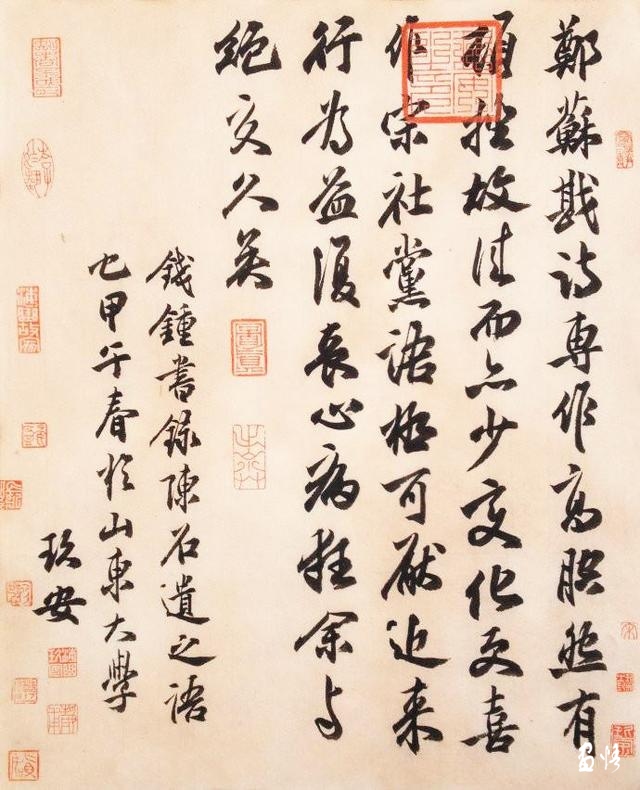 鄭蘇戡詩專作高腔然有
頓挫故佳而亦少变化更喜
作宗社黨語極可厭近来
行为益復喪心病狂余与
絕交久矣
錢鍾書錄陳石遺之語
也甲午春於山東大學
玖安